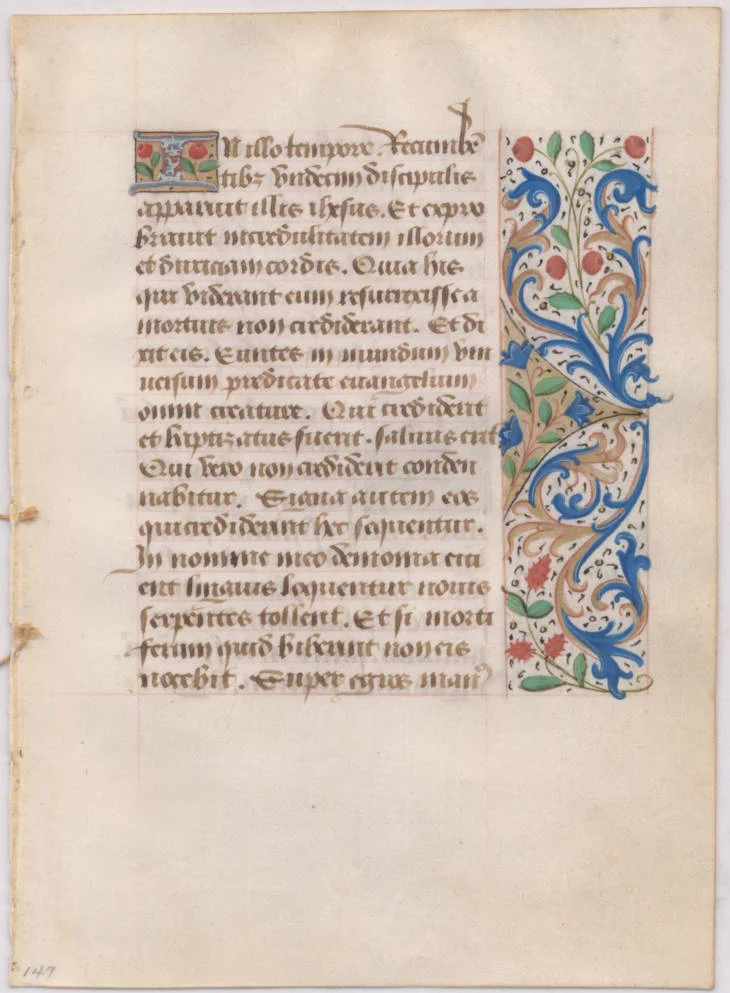 In illo tempore. Recumbē
tibꝫ vndecim discipulis
apparuit illis ihesus. Et expro
brauit incredulitatem illorum
et duriciam cordis. Quia his
qui viderant eum resurrexisse a
mortuis non crediderant. Et di
xit eis. Euntes in mundum vni
uersum predicate euangelium
omni creature. Qui crediderit
et baptizatus fuerit. saluus erit
Qui vero non crediderit conden
nabitur. Signa autem eos
qui crediderint hec sequentur.
In nomine meo demonia eici
ent linguis loquentur nouis
serpentes tollent. Et si morti
ferum quid biberint non eis
nocebit. Super egros manꝰ
147